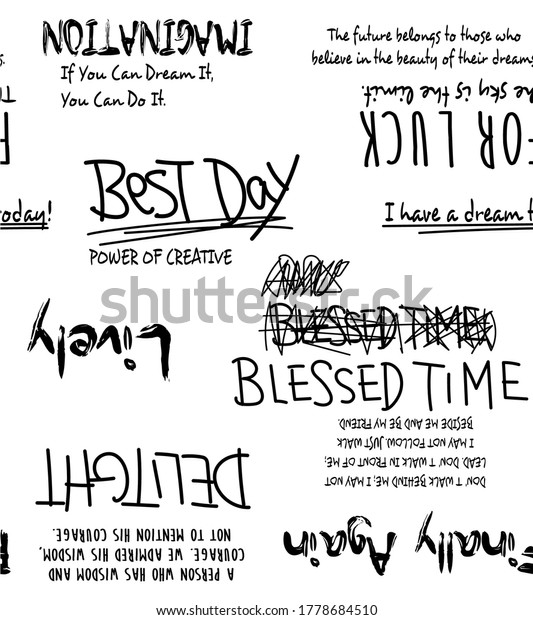 IMAGINATION
If You Can Dream It,
You Can Do It.
The future belongs to those who
believe in the beauty of their dreams
he sky is the limit.
FOR LUCK
BEST DAY
POWER OF CREATIVE
today!
I have a dream t
shutterstock
Lively
BLESSED TIME
BLESSED TIME
DON'T WALK BEHIND ME; I MAY NOT
LEAD. DON'T WALK IN FRONT OF ME;
I MAY NOT FOLLOW. JUST WALK
BESIDE ME AND BE MY FRIEND.
DELITGHT
A PERSON WHO HAS WISDOM AND
COURAGE. WE ADMIRED HIS WISDOM,
NOT TO MENTION HIS COURAGE.
Finally Again
shutterstock.com · 1778684510